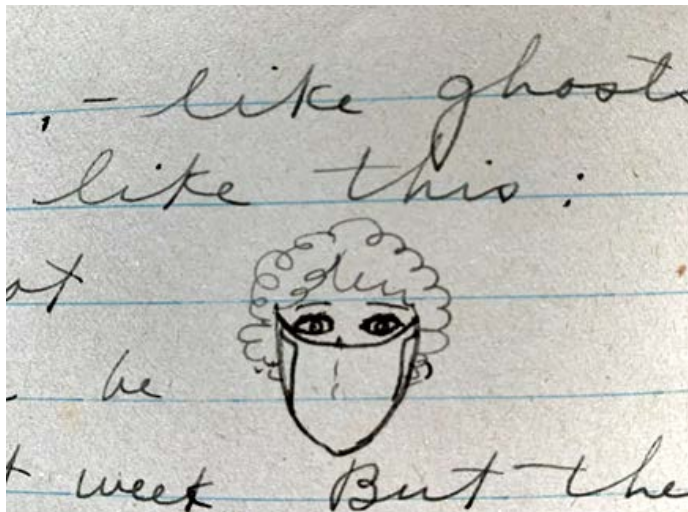 , - like ghosts
like this :
ot
be
t week But the